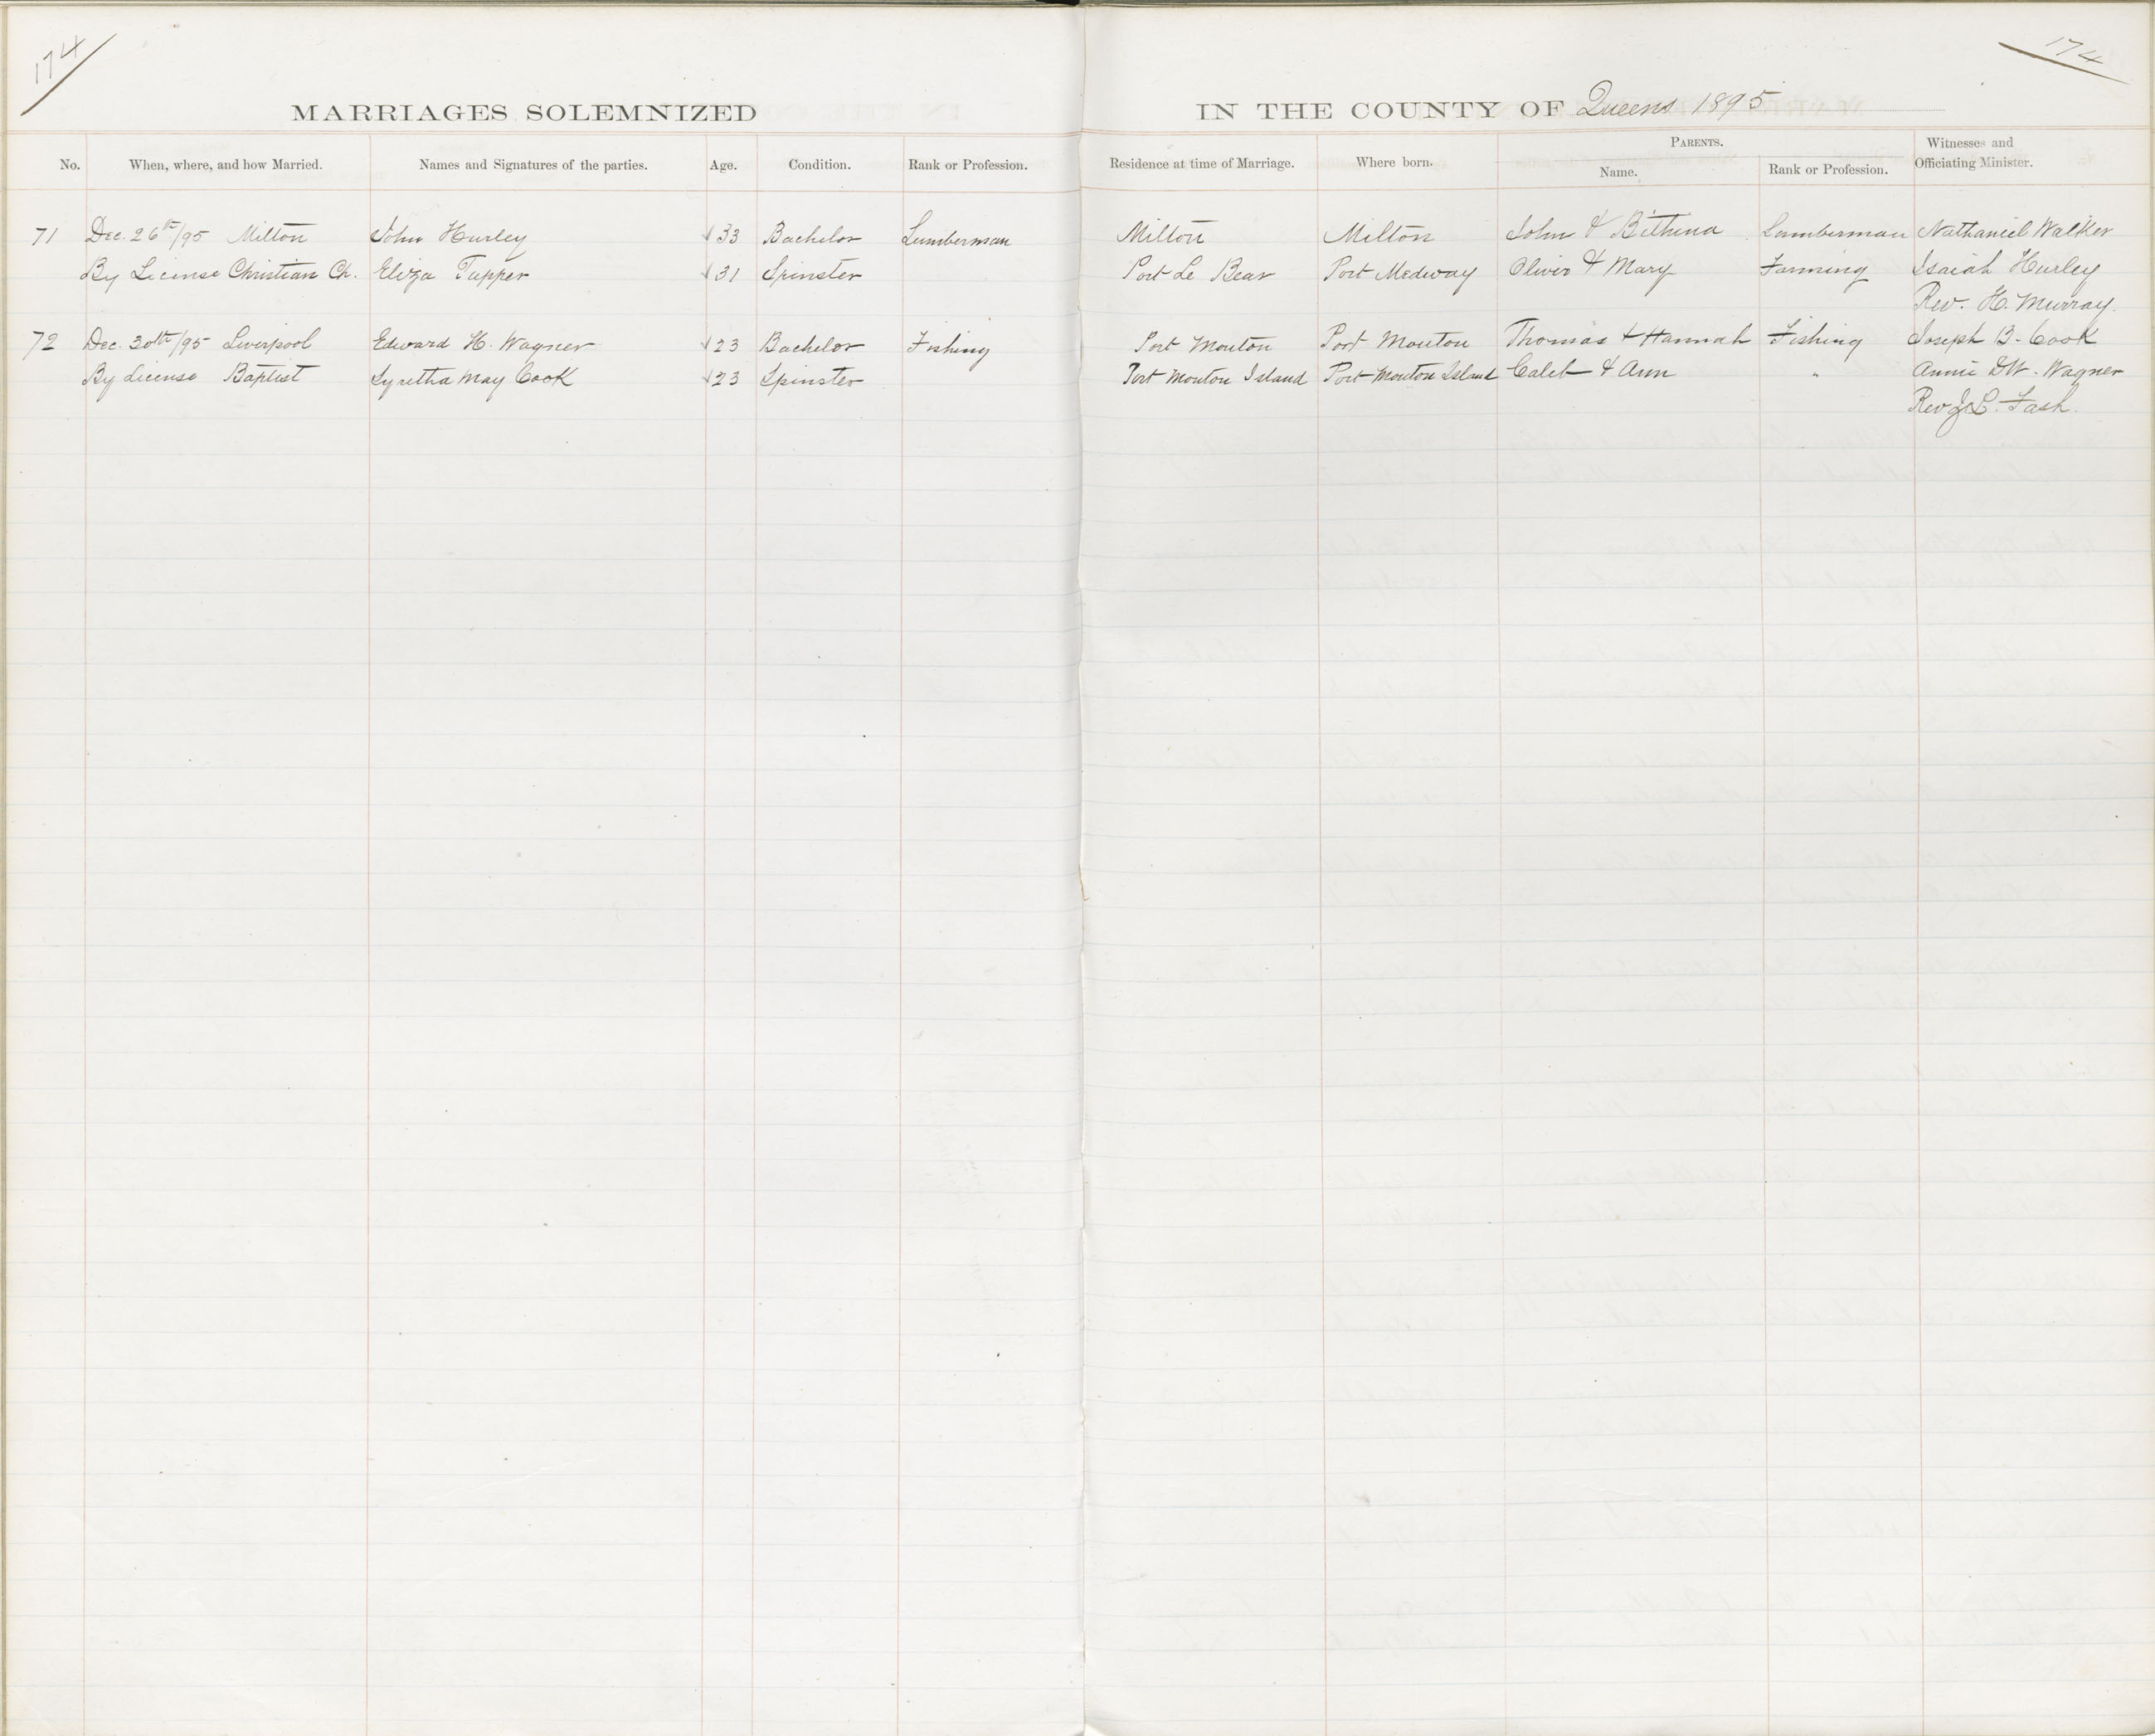 174
174
MARRIAGES SOLEMNIZED IN THE COUNTY OF Queens 1895
No. When, where, and how Married. Names and Signatures of the parties. Age. Condition. Rank or Profession. Residence at time of Marriage. Where born. PARENTS. Name. Rank or Profession. Witnesses and Officiating Minister.
71 Dec. 26th/95 Milton John Hurley 33 Bachelor Lumberman Milton Milton John & Bithina Lumberman Nathaniel Walker
By License Christian Ch. Eliza Tupper 31 Spinster Port Le Bear Port Medway Oliver & Mary Farming Isaiah Hurley
Rev. H. Murray.
72 Dec. 30th/95 Liverpool Edward H. Wagner 23 Bachelor Fishing Port Mouton Port Mouton Thomas & Hannah Fishing Joseph B. Cook
By License Baptist Lyretha May Cook 23 Spinster Port Mouton Island Port Mouton Island Caleb & Ann " Annie D W. Wagner
Rev J. L. Fash.